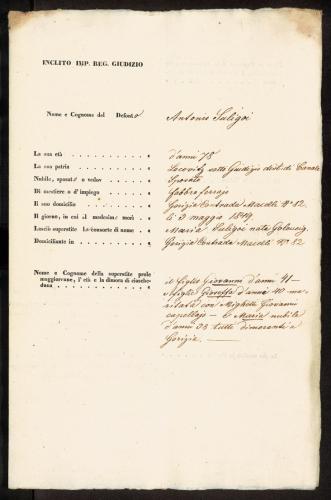 INCLITO IMP. REG. GIUDIZIO
Nome e Cognome del Defonto Antonio Suligoi
La sua età . . . . . . . . . . . « d'anni 78
La sua patria . . . . . . . . . . « sotto Giudizio distr. di Canale
Nubile, sposato o vedov . . . . . . « Sposato
Di mestiere o d'impiego . . . . . . « Fabbro ferrajo
Il suo domicilio . . . . . . . . . « Gorizia Contrada Macelli N° 82.
Il giorno, in cui il medesimo morì . . « li 2 maggio 1849.
Lasciò superstite la consorte di nome . . « Maria Suligoi nata
Domiciliante in . . . . . . . . . « Gorizia Contrada Macelli N° 82
Nome e Cognome della superstite prole
maggiorenne, l' età e la dimora di ciasche-
duna . . . . . . . . . . . . «
il figlio Giovanni d'anni 41 –
figlie Gioseffa d'anni 40 ma-
ritata con Giovanni
capellajo – e Maria nubile
d'anni 33 tutti dimoranti a
Gorizia